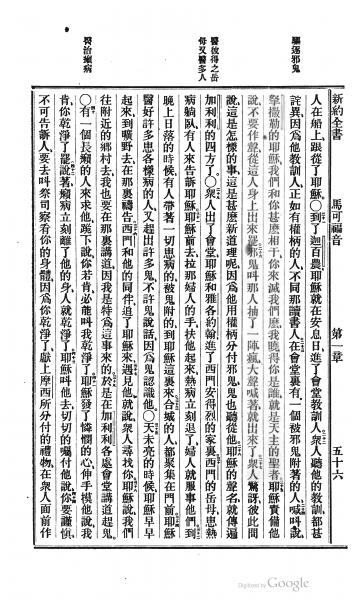 新約全書 馬可福音 第一章 五十六
驅逐邪鬼
醫彼得之岳
母又醫多人
醫治癩病
人在船上、跟從了耶穌○到了迦百農耶穌就在安息日進了會堂教訓人衆人聽他的教訓都甚
詫異因爲他教訓人正如有權柄的人不同那讀書人在會堂裏有一個被邪鬼附著的人喊叫說
拏撒勒的耶穌我們和你甚麼相干你來滅我們麼我曉得你是誰就是天主的聖者耶穌責備他
說不要作聲從這人身上出來罷邪鬼叫那人抽了一陣瘋大聲喊著就出來了衆人驚訝彼此問
說這是怎樣的事這是甚麼新道理呢因爲他用權柄分付邪鬼鬼也聽從他耶穌的聲名就傳遍
加利利的四方了○衆人出了會堂耶穌和雅各約翰進了西門安得烈的家裏西門的岳母患熱
病躺臥有人來告訴耶穌耶穌前去拉那婦人的手扶他起來熱病立刻退了婦人就服事他們到
晚上日落的時候有人帶著一切患病的被鬼附的到耶穌這裏來合城的人都聚集在門前耶穌
醫好許多患各樣病的人又趕出許多鬼不許鬼說話因爲鬼認識他○天未亮的時候耶穌早早
起來到曠野去在那裏禱告西門和他的同伴追了耶穌來遇見他就說衆人尋找你耶穌說我們
往附近的鄉村去我也要在那裏講道因我是特爲這事來的於是在加利利各處會堂講道趕鬼
○有一個長癩的人來求他跪下說你若肯必能叫我乾淨了耶穌發了憐憫的心伸手摸他說我
肯你乾淨了罷說著癩病立刻離了他的身人就乾淨了耶穌叫他去切切的囑付他說你要謹慎
不可告訴人要去叫祭司察看你的身體因爲你乾淨了獻上摩西所分付的禮物在衆人面前作
Digitized by Google